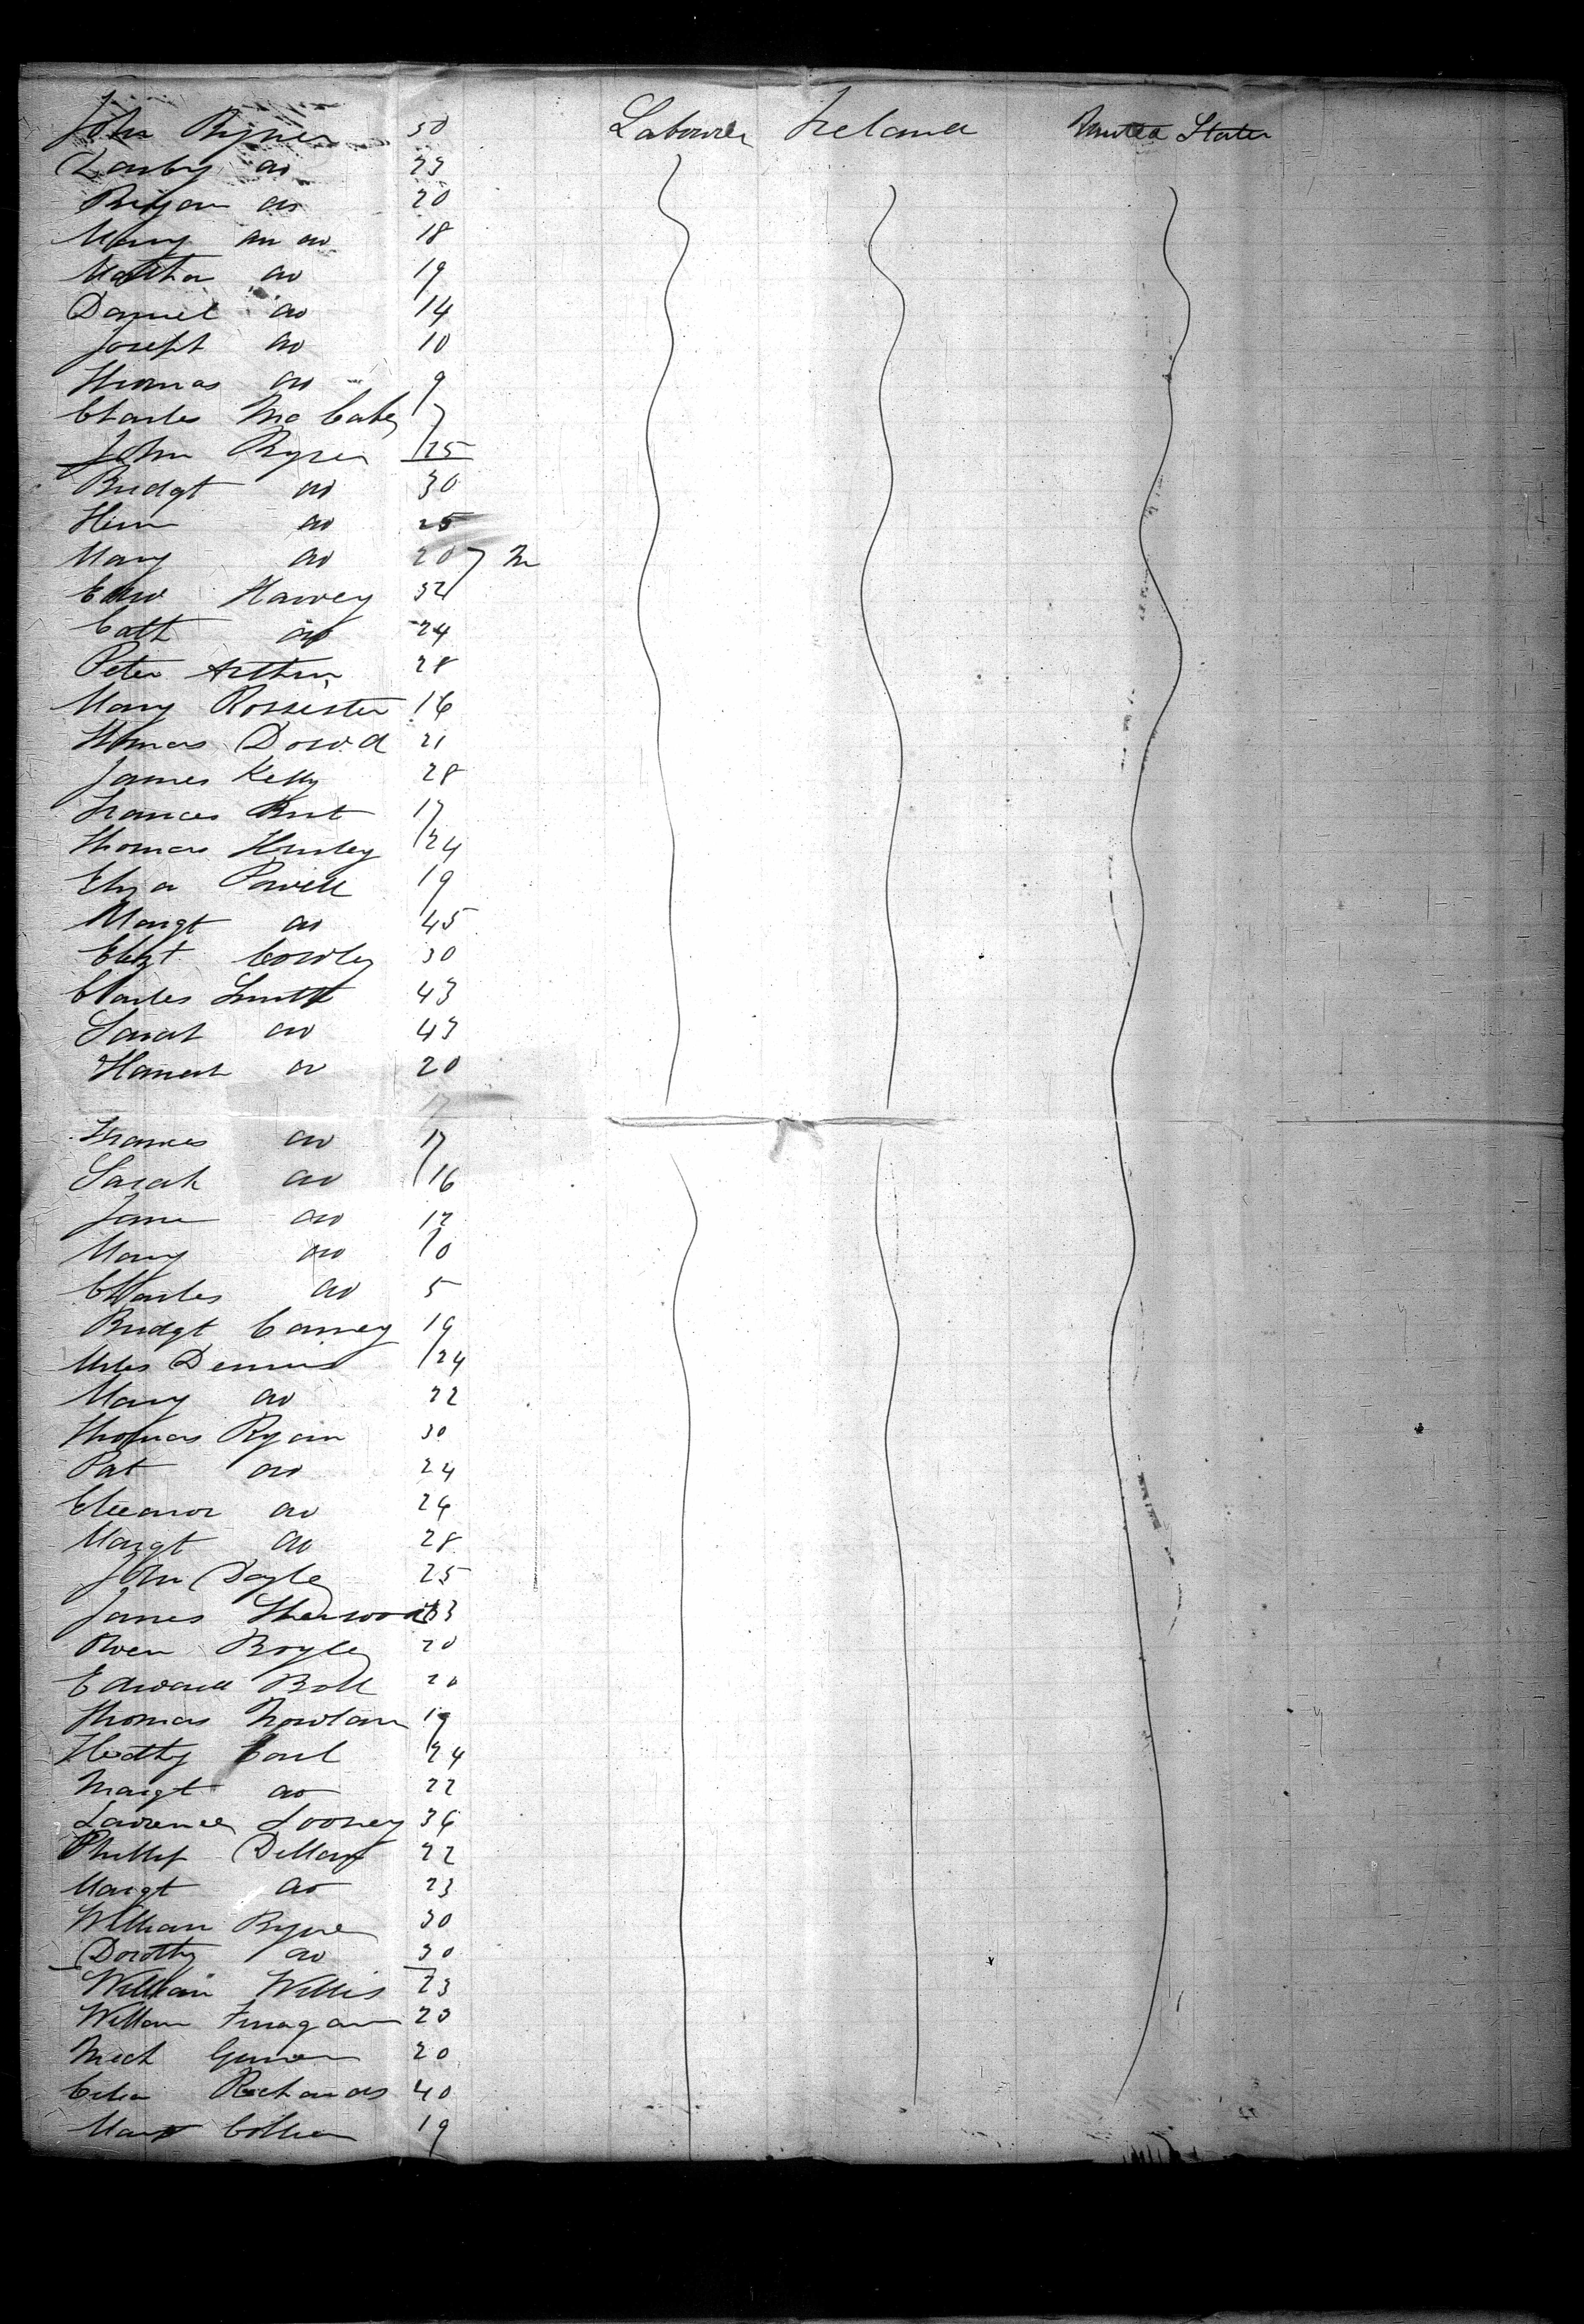 John Byrne 50 Labourer Ireland United States
Darby do 23
Bryan do 20
Mary an do 18
Martha do 19
Daniel do 14
Joseph do 10
Thomas do 9
Charles McCabe 7
John Byrne 25
Bridgt do 30
do 25
Mary do 20
Edw Harvey 32
Cath do 24
Peter Arthur 28
Mary Rossester 16
Thomas Dowd 21
James Kelly 28
Frances 17
Thomas Hurley 24
Eliza Powell 19
Margt do 45
Elizt Cowley 30
Charles Smith 43
Sarah do 43
Hanah do 20
17
Frances do 17
Sarah do 16
Jane do 12
Mary do 10
Charles do 5
Bridgt Carney 19
Miles Dennis 24
Mary do 22
Thomas Ryan 30
Pat do 24
Eleanor do 26
Margt do 28
John Doyle 25
James Sherwood 33
Owen Boyle 20
Edward Ball 20
Thomas Nowlan 19
24
Margt do 22
Lawrence Looney 36
Phillip 22
Margt do 23
William Byrne 30
Dorothy do 30
William Willis 23
William Finagan 20
Mich 20
Richards 40
19